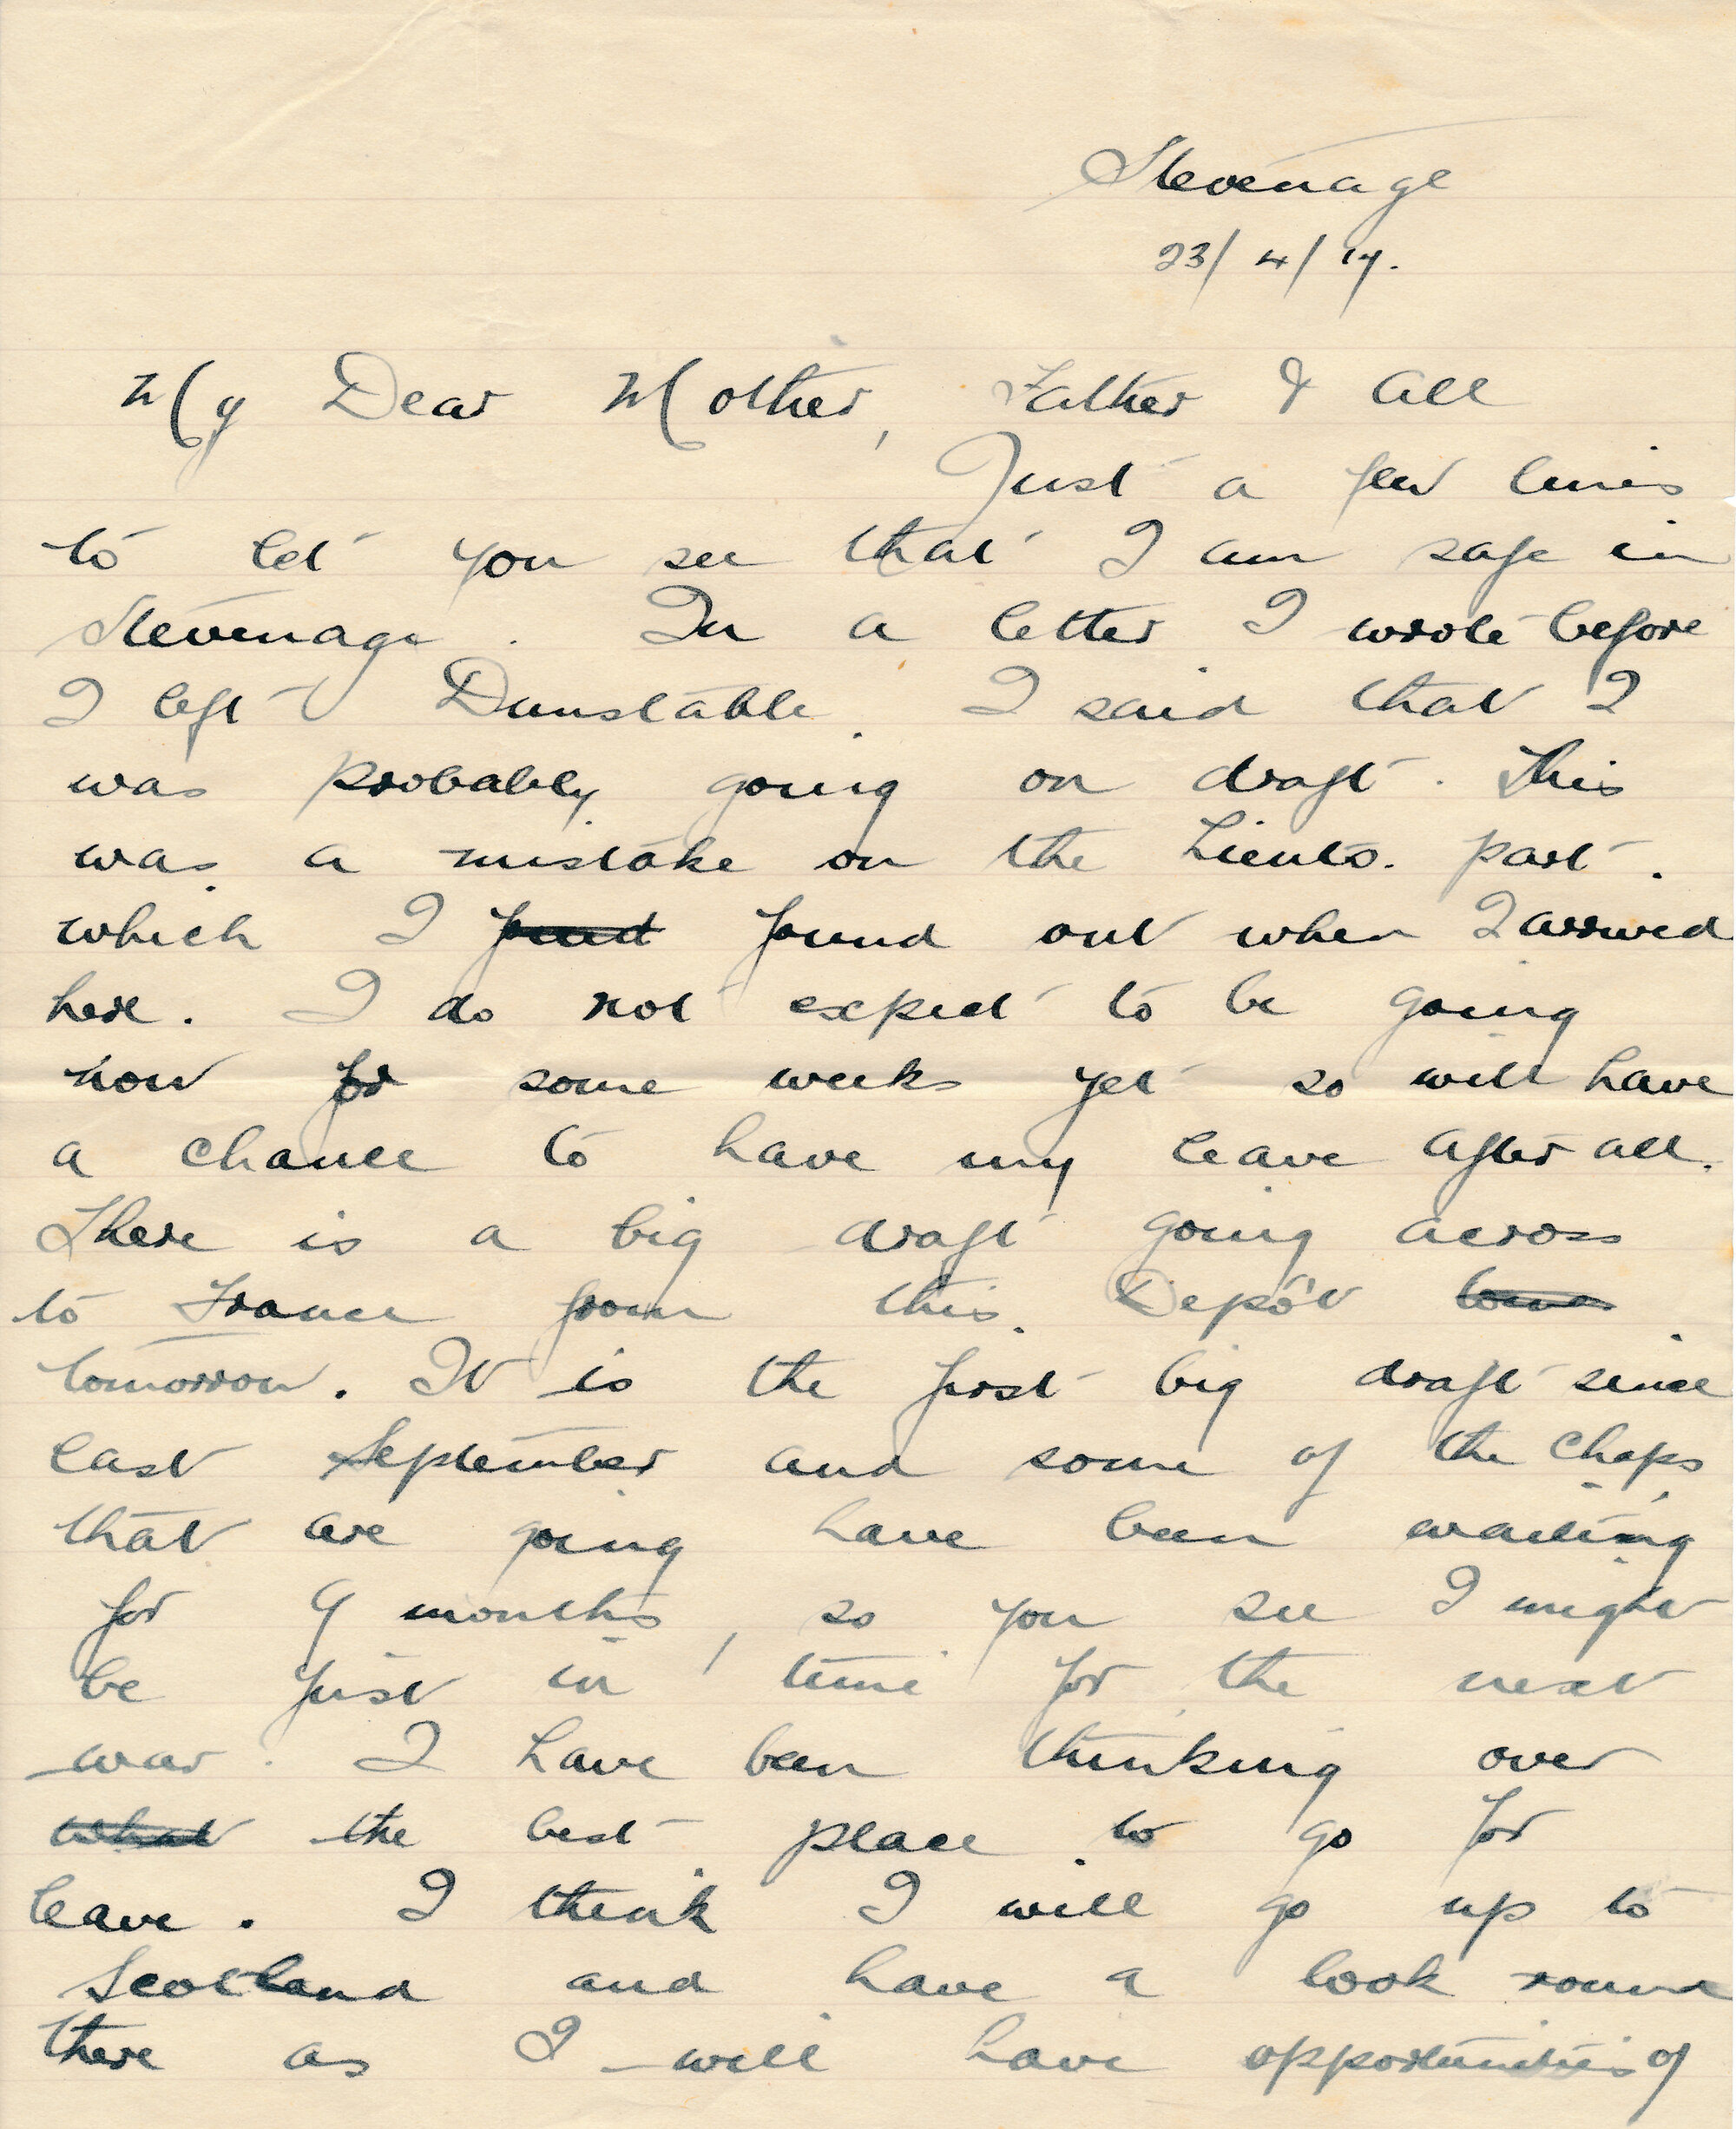 Stevenage
23/4/17.
My Dear Mother, Father & All
Just a few lines
to let you see that I am safe in
Stevenage. In a letter I wrote before
I left Dunstable I said that I
was probably going on draft. This
was a mistake on the Lieuts. part.
which I found out when I arrived
here. I do not expect to be going
now for some weeks yet so will have
a chance to have my leave after all.
There is a big draft going across
to France from this Depôt
tomorrow. It is the first big draft since
last September and some of the chaps
that are going have been waiting
for 9 months, so you see I might
be just in time for the next
war. I have been thinking over
what the best place to go for
leave. I think I will go up to
Scotland and have a look round
there as I will have opportunities of